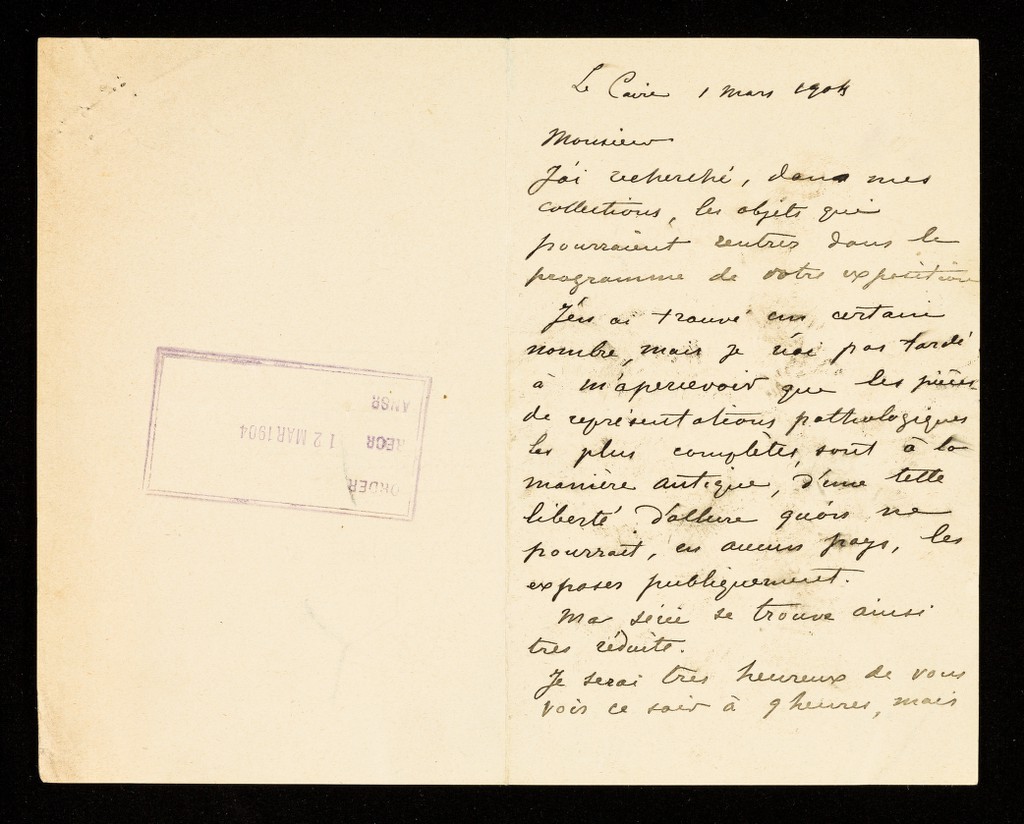 ORDER
RECR 12 MAR 1904
ANSR
Le Caire 1 mars 1904
Monsieur
J'ai recherché, dans mes
collections, les objets qui
pourraient rentrer dans le
programme de votre exposition
J'en ai trouvé un certain
nombre, mais je n'ai pas tardé
à m'apercevoir que les pièces
de représentations pathologiques
les plus complètes, sont à la
manière antique, d'une telle
liberté d'allure qu'on ne
pourrait, en aucun pays, les
exposer publiquement.
Ma série se trouve ainsi
très réduite.
Je serai très heureux de vous
voir ce soir à 9 heures, mais